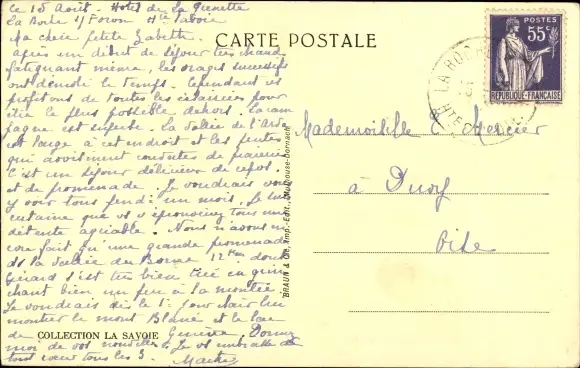 Le 18 Août - Hotel de la
La Roche s/ Foron Hte Savoie
Ma chère petite Babette.
Après un début de séjour très chaud
fatigant même, les orages successifs
ont démoli le temps. Cependant ns
profitons de toutes les éclaircies pour
être le plus possible dehors. La cam
pagne est superbe. La vallée de l'Arve
est large à cet endroit et les pentes
qui avoisinent couvertes de prairies
C'est un séjour délicieux de repos
et de promenade. Je voudrais vous
y voir tous pendt un mois. Je suis
certaine que vs y éprouveriez tous une
détente agréable. Nous n'avons en
core fait qu'une grande promenade
ds la vallée du Borne 12 Km dont
Gérard s'est très bien tiré en
chant bien un peu à la montée
Je voudrais dès le 1er jour
montrer le mont Blanc et le lac
de Genève. Donnez
moi de vos nouvelles. Je vs embrasse de
tout coeur tous les 3.
CARTE POSTALE
POSTES
55c
RÉPUBLIQUE-FRANÇAISE
LA ROCHE
Mademoiselle C Mercier
à
Oise
BRAUN & Cie, Imp.-Edit., Mulhouse-Dornach
COLLECTION LA SAVOIE